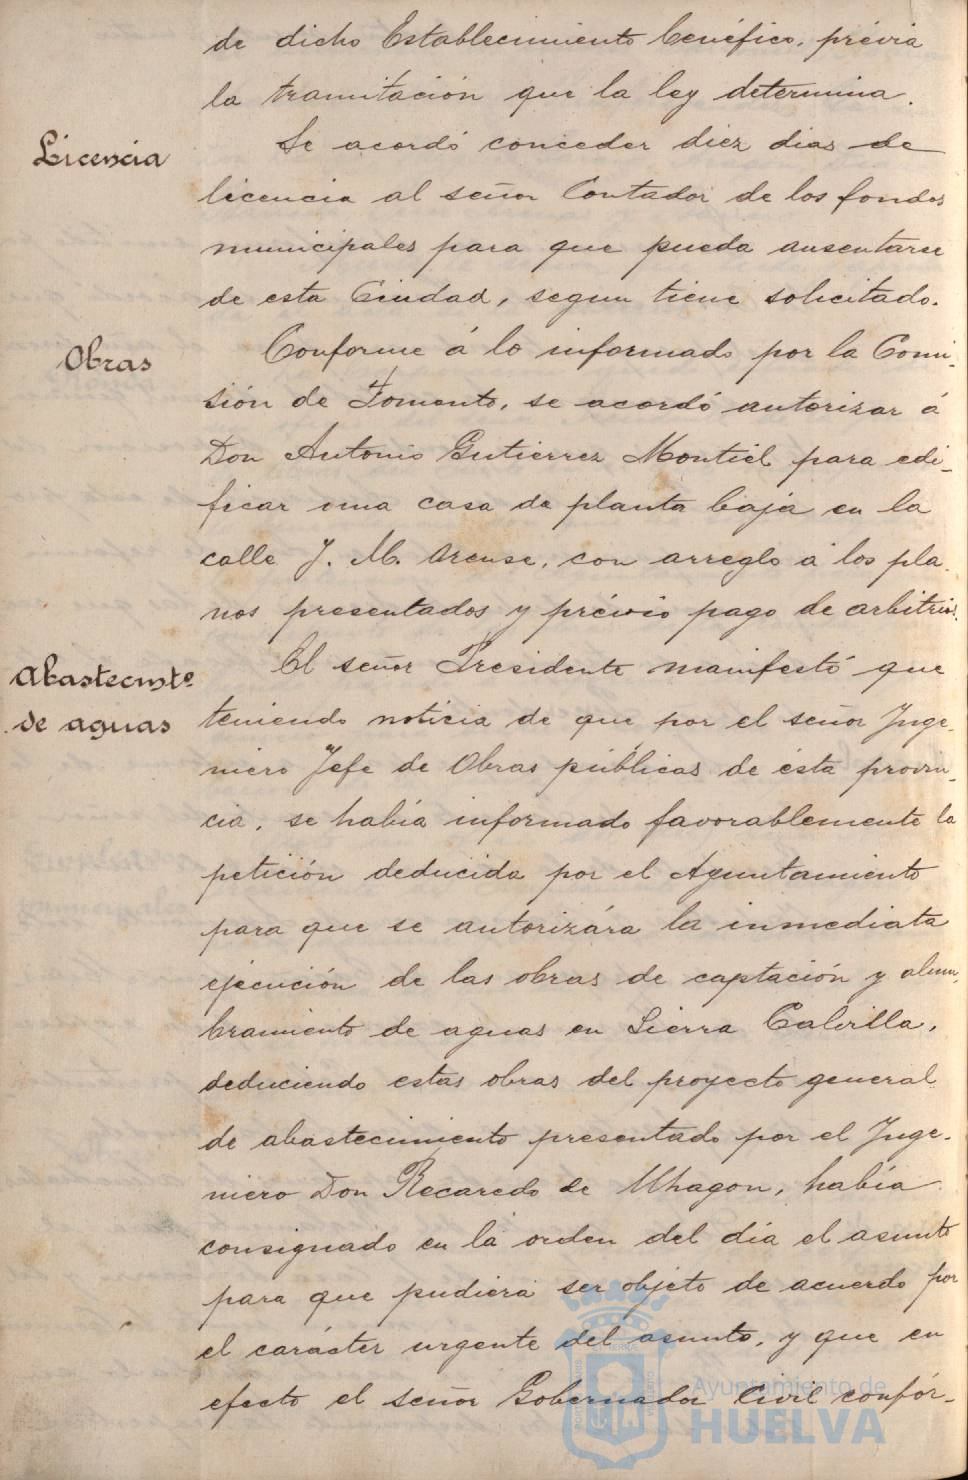 de dicho Establecimiento benéfico, prévia
la tramitación que la ley determina.
Licencia
Se acordó conceder diez dias de
licencia al señor Contador de los fondos
municipales para que pueda ausentarse
de esta Ciudad, segun tiene solicitado.
Obras
Conforme á lo informado por la Comi-
sión de Fomento, se acordó autorizar á
Don Antonio Gutierrez Montiel para edi-
ficar una casa de planta baja en la
calle J. M. Orense, con arreglo á los pla-
nos presentados y prévio pago de arbitrios.
Abastecimtº
de aguas
El señor Presidente manifestó que
teniendo noticia de que por el señor Inge-
niero Jefe de Obras públicas de ésta provin-
cia, se había informado favorablemente la
petición deducida por el Ayuntamiento
para que se autorizára la inmediata
ejecución de las obras de captación y alum-
bramiento de aguas en Sierra Calvilla,
deduciendo estas obras del proyecto general
de abastecimiento presentado por el Inge-
niero Don Recaredo de Uhagon, había
consignado en la orden del día el asunto
para que pudiera ser objeto de acuerdo por
el carácter urgente del asunto, y que en
efecto el señor Gobernador Civil confór-
Ayuntamiento de
HUELVA